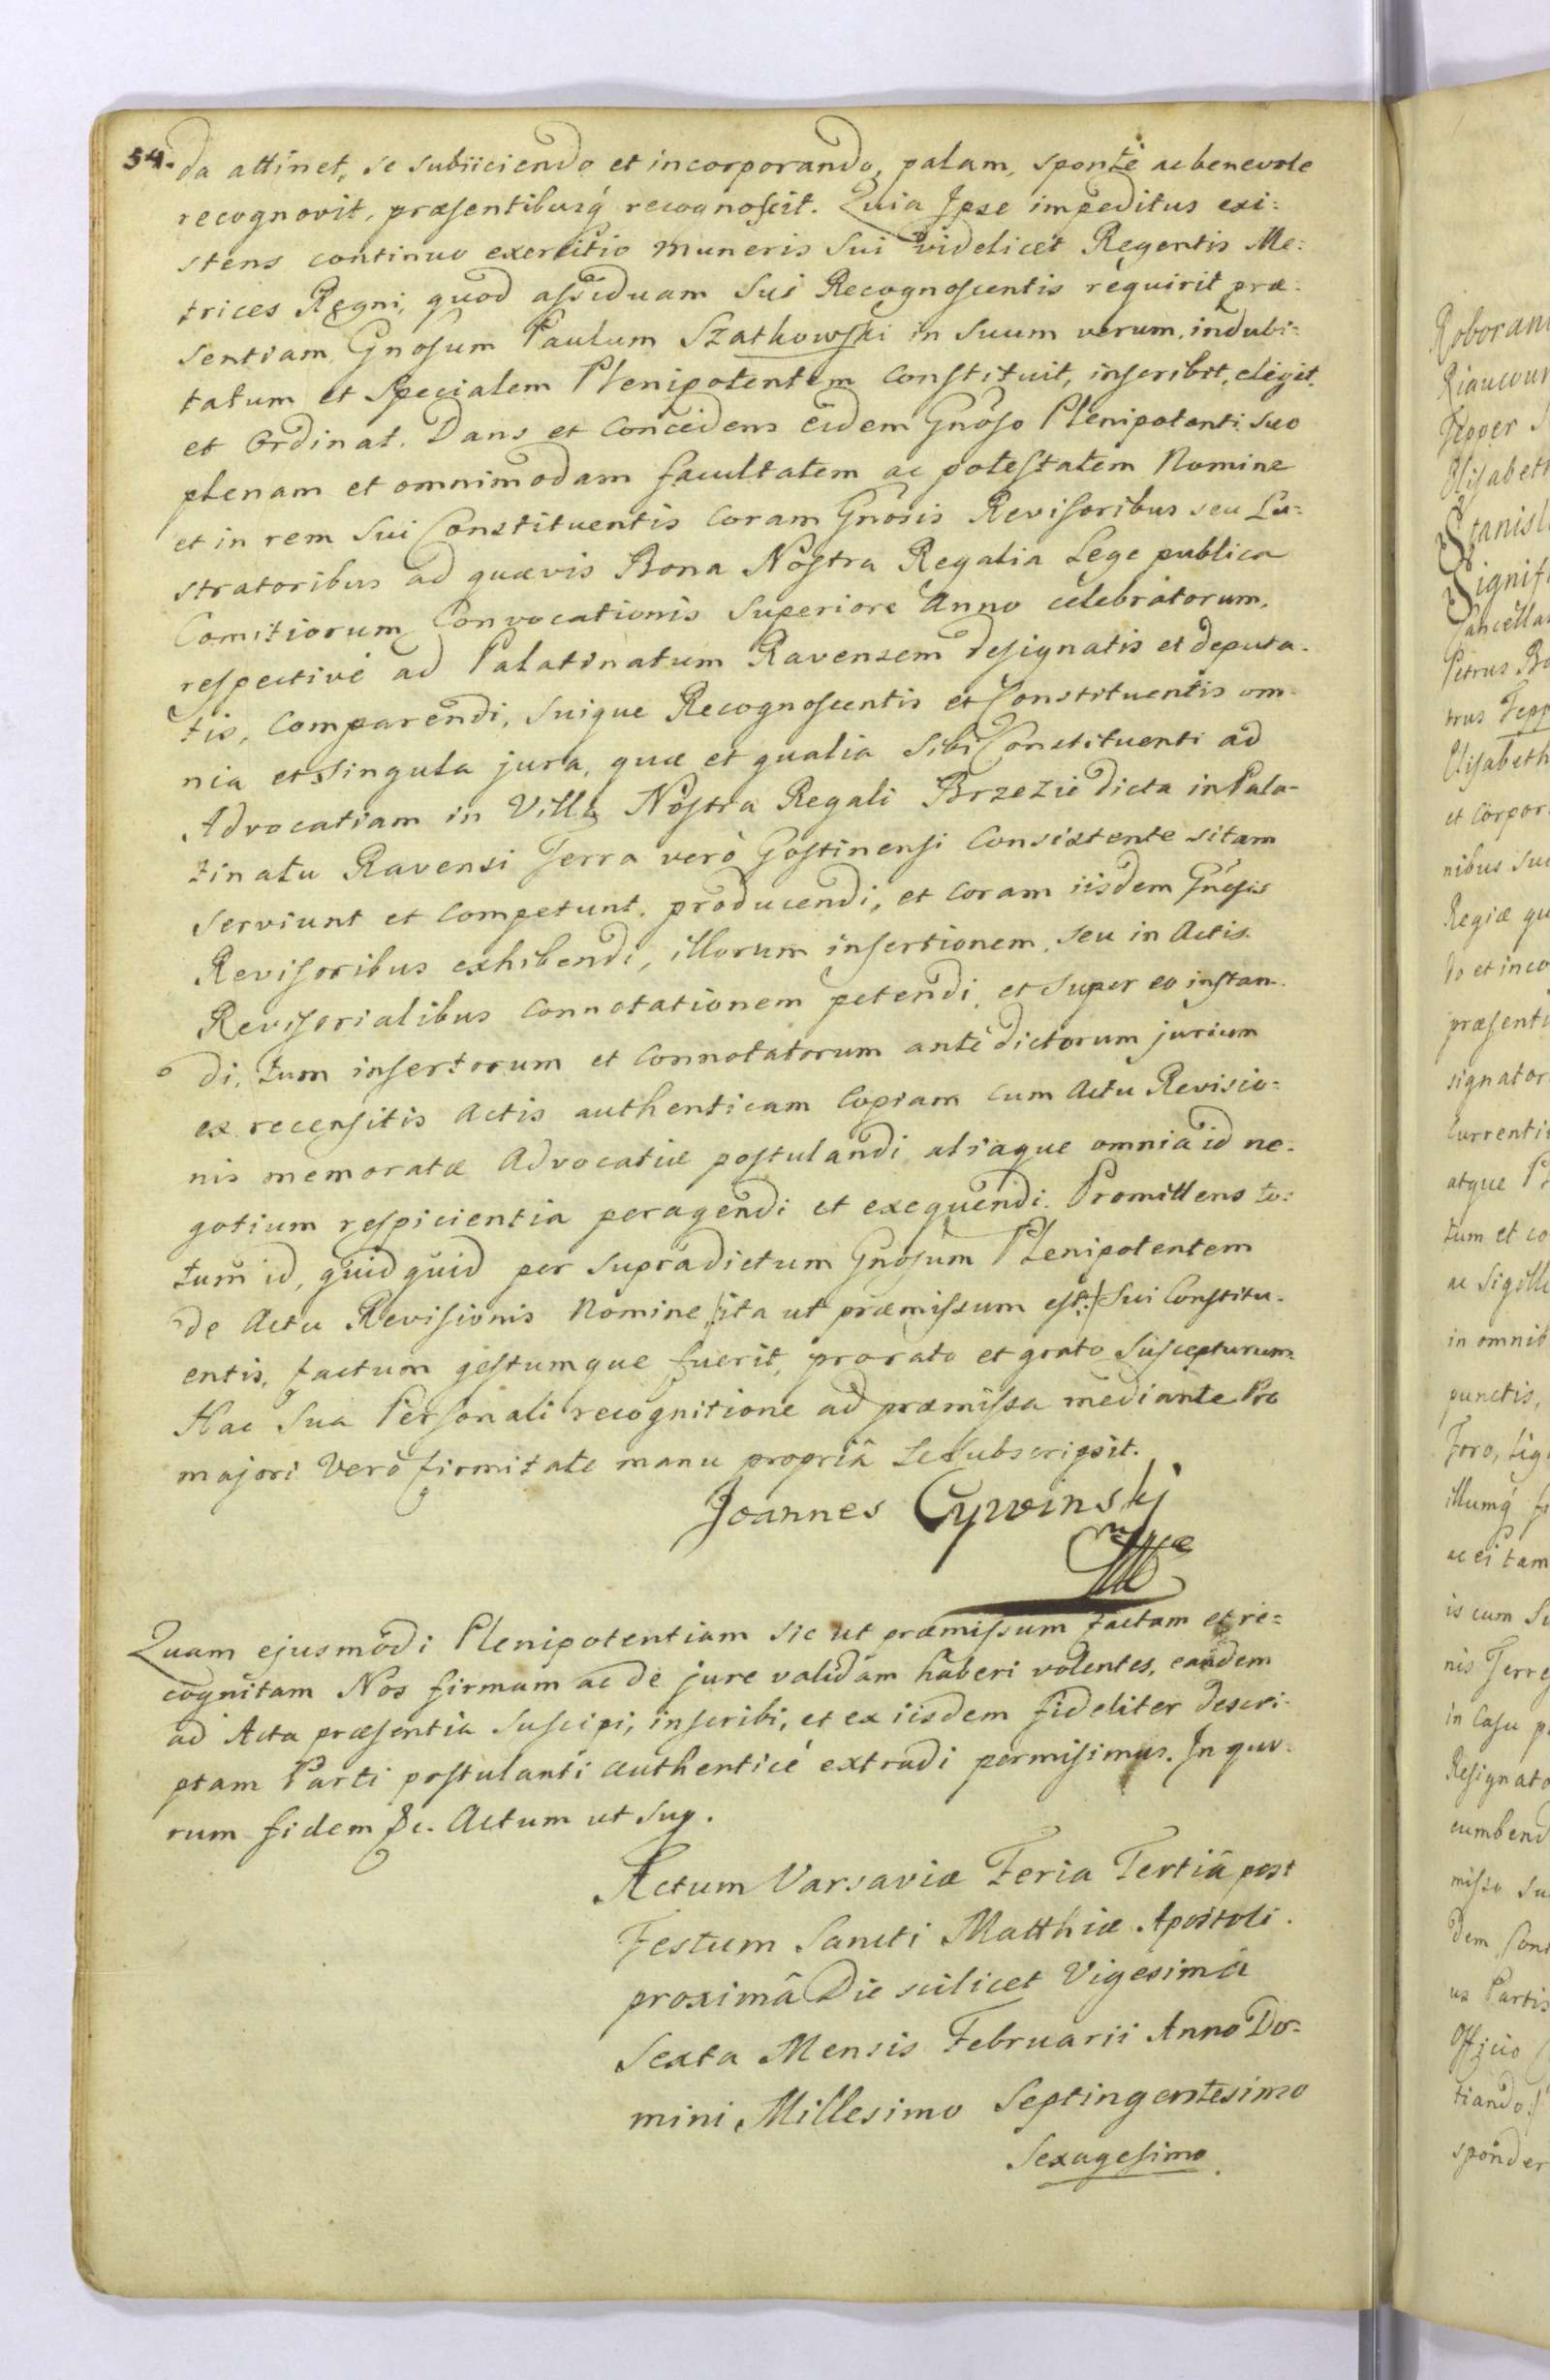 54. da attinet, se subiiciendo et incorporando, palam, spontè ac benevole
recognovit, præsentibusq́ recognoscit. Quia Ipse impeditus exi:
stens continuo exercitio muneris Sui videlicet Regentis Me:
trices Regni, quod assiduam Sui Recognoscentis requirit præ:
sentiam, Gnosum Paulum Szatkowski in Suum verum, indubi:
tatum et Specialem Plenipotentem Constituit, inscribit, elegit,
et Ordinat. Dans et Concedens eidem Gnoso Plenipotenti Suo
plenam et omnimodam facultatem ac potestatem Nomine
et in rem Sui Constituentis Coram Gnosis Revisoribus seu Lu:
stratoribus ad quævis Bona Nostra Regalia Lege publica
Comitiorum Convocationis Superiore Anno celebratorum,
respectivè ad Palatinatum Ravensem designatis et deputa-
tis, Comparendi, Suique Recognoscentis et Constituentis om-
nia et singula jura, quæ et qualia Sibi Constituenti ad
Advocatiam in Villa Nostra Regali Brzezie dicta in Pala-
tinatu Ravensi Terra verò Gostinensi Consistente sitam
Serviunt et Competunt, producendi, et Coram iisdem Gnosis
Revisoribus exhibendi, illorum insertionem, seu in Actis
Revisorialibus Connotationem petendi, et super eo instan-
di, tum insertorum et Connotatorum antè dictorum jurium
ex recensitis Actis authenticam Copiam cum Actu Revisio:
nis memoratæ Advocatiæ postulandi, aliaque omnia id ne-
gotium respicientia peragendi et exequendi. Promittens to:
tum id, quidquid per supradictum Gnosum Plenipotentem
de Actu Revisionis Nomine /:ita ut præmissum est:/ Sui Constitu-
entis, factum gestumque fuerit, pro rato et grato Suscepturum.
Hac Sua Personali recognitione ad præmissa mediante Pro
majori verò firmitate manu propriâ Se Subscripsit.
Joannes Cywinskj
Quam ejusmodi Plenipotentiam sic ut præmissum factam et re=
cognitam Nos firmam ac de jure validam haberi volentes, eandem
ad Acta præsentia Suscipi, inscribi, et ex iisdem fideliter descri-
ptam Parti postulanti authenticè extradi permisimus. In quo-
rum fidem &c. Actum ut Sup.
Actum Varsaviæ Feria Tertiâ post
Festum Sancti Matthiæ Apostoli
proximâ Die scilicet Vigesimâ
Sexta Mensis Februarii Anno Do-
mini Millesimo Septingentesimo
Sexagesimo
Roborani
Riaucour
Tepper
Elisabeth
Stanisl
Signif
Cancella
Petrus
trus Tepp
Elisabeth
et Corpor
nibus Su
Regiæ qu
do et inco
præsenti
signator
Currenti
atque
tum et co
ac Sigill
in omnib
punctis,
Foro,
illumq́
ac ei tam
is cum
nis Terre
in Casu
Resignato
cumbend
misso Su
dem Cons
us Partis
Officio
tiando:/
sponder